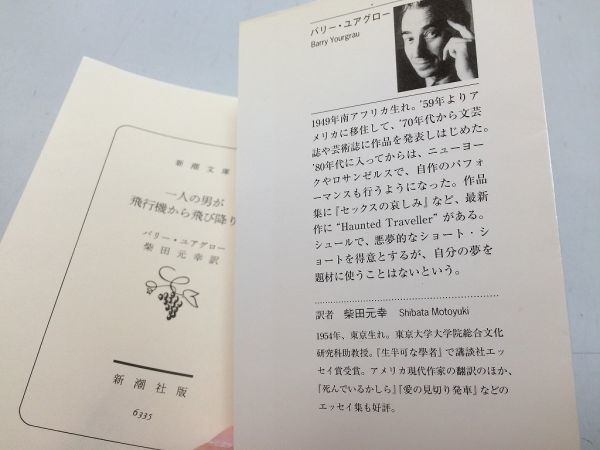 新潮文庫
一人の男が
飛行機から飛び降り
バリー・ユアグロー
柴田元幸訳
新潮社版
6335
バリー・ユアグロー
Barry Yourgrau
1949年南アフリカ生れ。'59年よりア
メリカに移住して、'70年代から文芸
誌や芸術誌に作品を発表しはじめた。
'80年代に入ってからは、ニューヨー
クやロサンゼルスで、自作のパフォ
ーマンスも行うようになった。作品
集に『セックスの哀しみ』など、最新
作に“Haunted Traveller”がある。
シュールで、悪夢的なショート・ショ
ートを得意とするが、自分の夢を
題材に使うことはないという。
訳者 柴田元幸 Shibata Motoyuki
1954年、東京生れ。東京大学大学院総合文化
研究科助教授。『生半可な學者』で講談社エッ
セイ賞受賞。アメリカ現代作家の翻訳のほか、
『死んでいるかしら』『愛の見切り発車』などの
エッセイ集も好評。